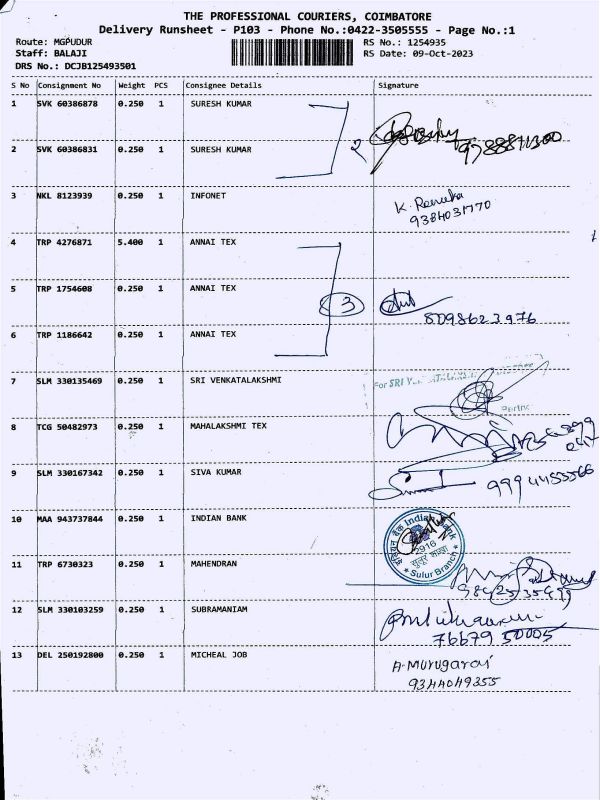 THE PROFESSIONAL COURIERS, COIMBATORE
Delivery Runsheet - P103 - Phone No.:0422-3505555 - Page No.:1
Route: MGPUDUR
RS No.: 1254935
Staff: BALAJI
RS Date: 09-Oct-2023
DRS No.: DCJB125493501
S No Consignment No Weight PCS Consignee Details Signature
1 SVK 60386878 0.250 1 SURESH KUMAR
2 SVK 60386831 0.250 1 SURESH KUMAR
2
3 NKL 8123939 0.250 1 INFONET
K. Renuka
9384031770
4 TRP 4276871 5.400 1 ANNAI TEX
5 TRP 1754608 0.250 1 ANNAI TEX
3
8098623976
6 TRP 1186642 0.250 1 ANNAI TEX
7 SLM 330135469 0.250 1 SRI VENKATALAKSHMI
For SRI
8 TCG 50482973 0.250 1 MAHALAKSHMI TEX
9 SLM 330167342 0.250 1 SIVA KUMAR
9994455566
10 MAA 943737844 0.250 1 INDIAN BANK
Indian Bank
Sulur Branch
11 TRP 6730323 0.250 1 MAHENDRAN
9842535499
12 SLM 330103259 0.250 1 SUBRAMANIAM
76679 50005
13 DEL 250192800 0.250 1 MICHEAL JOB
A. Murugaraj
9344049355